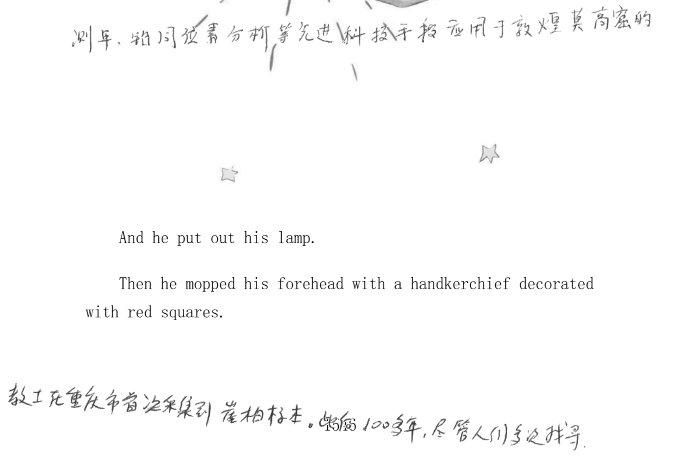 测年、铅同位素分析等先进科技手段应用于敦煌莫高窟的
And he put out his lamp.
Then he mopped his forehead with a handkerchief decorated
with red squares.
教士在重庆市首次采集到崖柏标本。此后100多年,尽管人们多次找寻